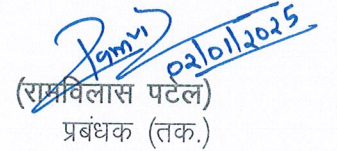 02/01/2025
(रामविलास पटेल)
प्रबंधक (तक.)